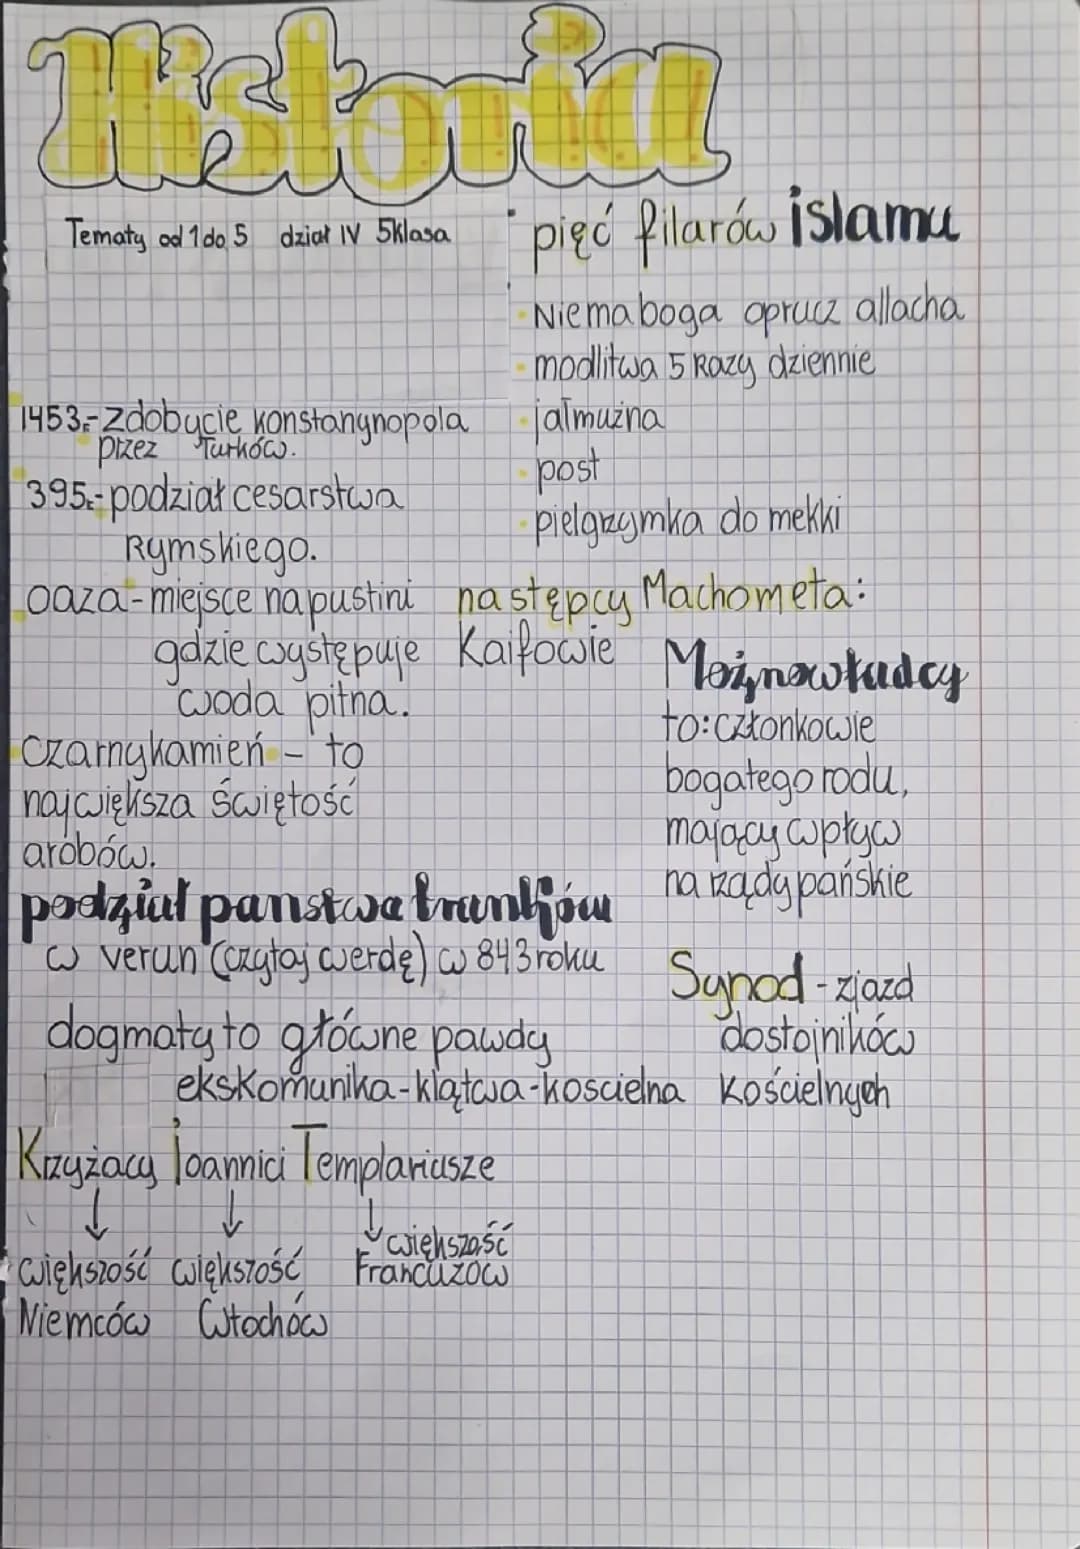 Historia
Tematy od 1 do 5 dział IV 5klasa
pięć filarów islamu
Niema boga oprucz allacha
modlitwa 5 Razy dziennie
jałmużna
post
pielgrzymka do mekki
1453r-zdobycie konstanynopola
przez Turków.
395r-podział cesarstwa
Rymskiego.
oaza-miejsce na pustini
gdzie występuje
woda pitna.
następcy Machometa:
Kaifowie
Możnowładcy
to:członkowie
bogatego rodu,
mający wpływ
na rządy pańskie
czarnykamień - to
największa świętość
arobów.
podział panstwa franków
w verun (czytaj werdę) w 843 roku
Synod - zjazd
dostojnikóω
kościelnych
dogmaty to główne pawdy
ekskomunika-klątwa-koscielna
Krzyżacy Joannici Templariusze
większość większość większość
Niemców Włochów Francuzów